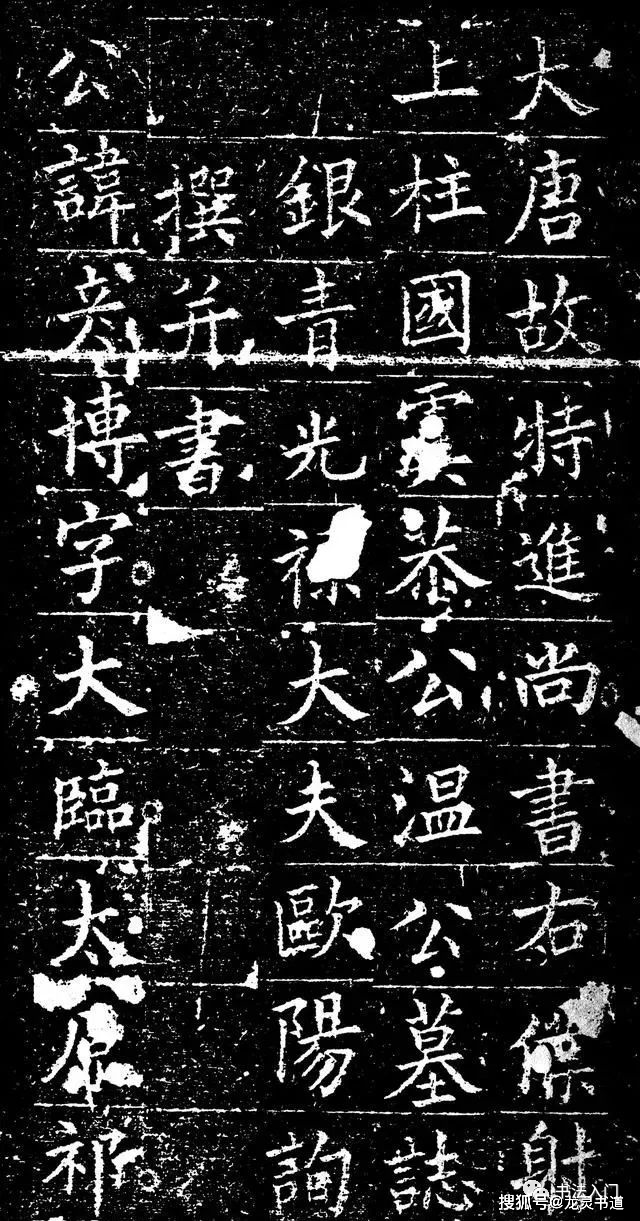 大唐故特進尚書右僕射
上柱國虞恭公温公墓誌
銀青光祿大夫歐陽詢
撰并書
公諱彦博字大臨太原祁
书法入门
搜狐号@龙灵书道